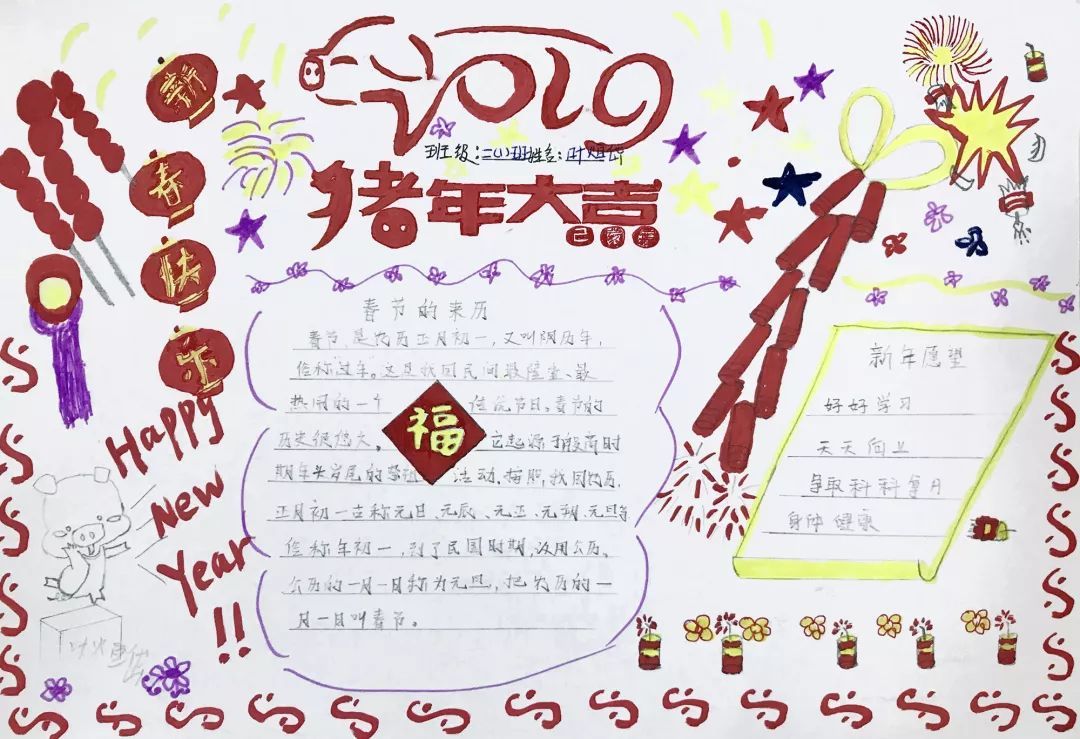 2019
班级:二(1)班姓名:
猪年大吉
己亥年
新
春
快
乐
Happy
New
Year
!!
春节的来历
春节,是农历正月初一,又叫阴历年,
俗称过年。这是我国民间最隆重、最
热闹的一个 传统节日。春节的
历史很悠久。 它起源于殷商时
期年头岁尾的祭祖 活动,按照我国农历,
正月初一古称元日、元辰、元正、元朔、元旦等
俗称年初一,到了民国时期,改用公历。
公历的一月一日称为元旦,把农历的一
月一日叫春节。
福
新年愿望
好好学习
天天向上
争取科科拿A
身体健康